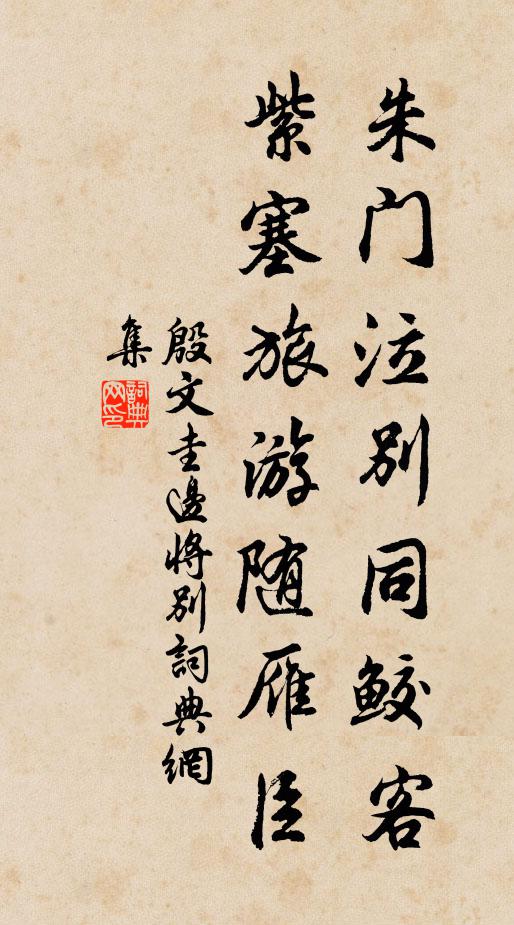 朱门泣别同鲛客
紫塞旅游随雁臣
殷文圭邊將别詞典網
集
詞典网印